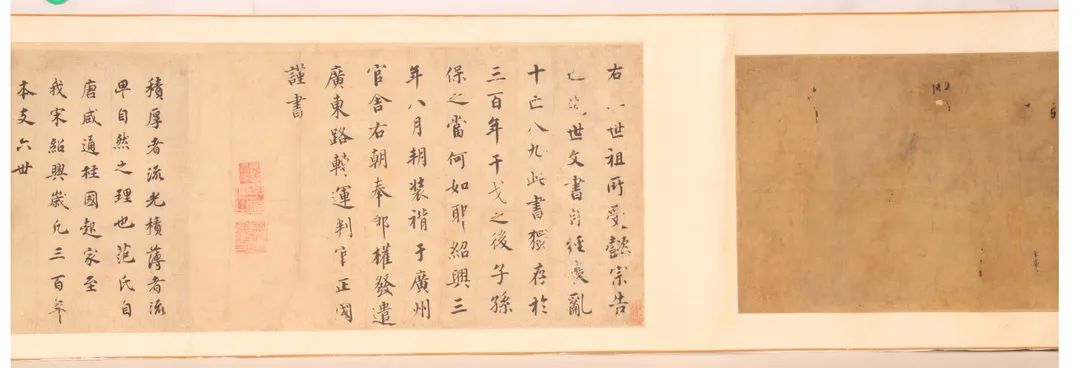 右 世祖所受懿宗告
世文書自經變亂
十亡八九此書獨存於
三百年干戈之後子孫
保之當何如耶紹興三
年八月朝裝褙于廣州
官舍右朝奉郎權發遣
廣東路轉運判官正國
謹書
積厚者流光積薄者流
卑自然之理也范氏自
唐咸通柱國起家至
我宋紹興歲凡三百年
本支六世